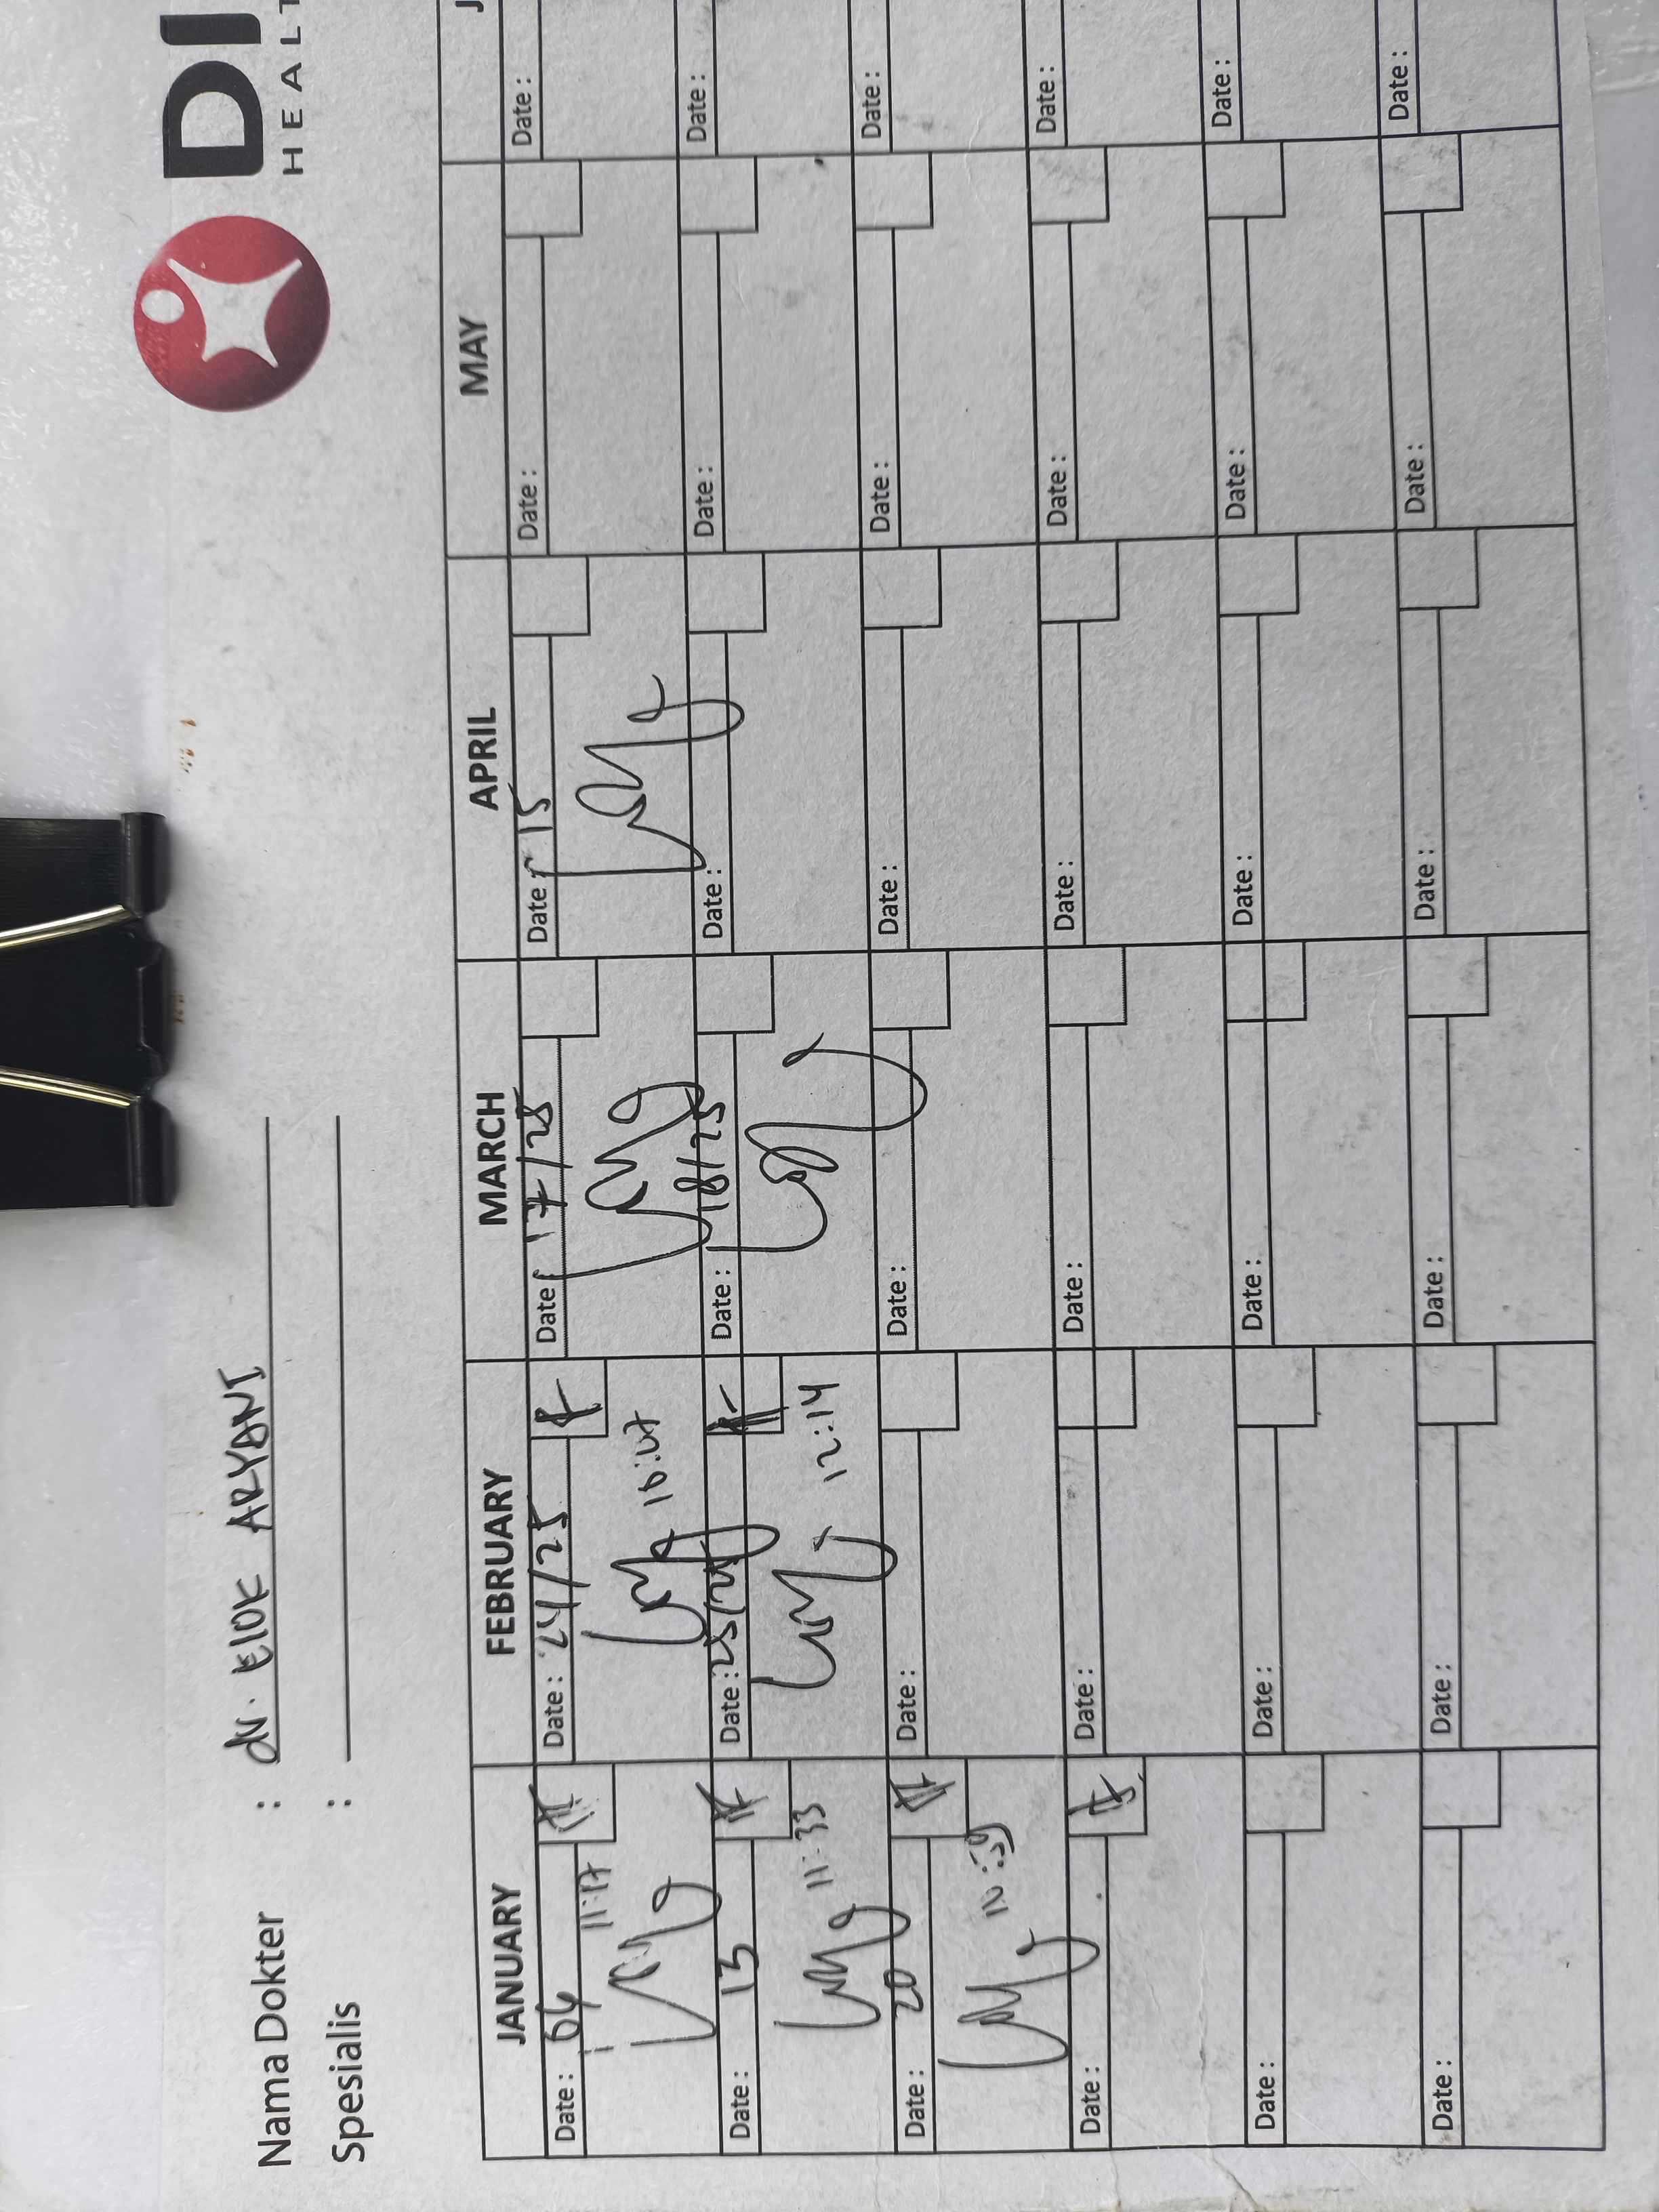 DI
HEALT
Nama Dokter : dr. ELOK ARYANI
Spesialis :
JANUARY FEBRUARY MARCH APRIL MAY J
Date : 06 Date : 24/25 Date 17/25 Date : 15 Date : Date :
11:17 16:47
Date : 13 Date : 25/25 Date : 18/25 Date : Date : Date :
11:33 12:14
Date : 20 Date : Date : Date : Date : Date :
Date : Date : Date : Date : Date : Date :
Date : Date : Date : Date : Date : Date :
Date : Date : Date : Date : Date : Date :